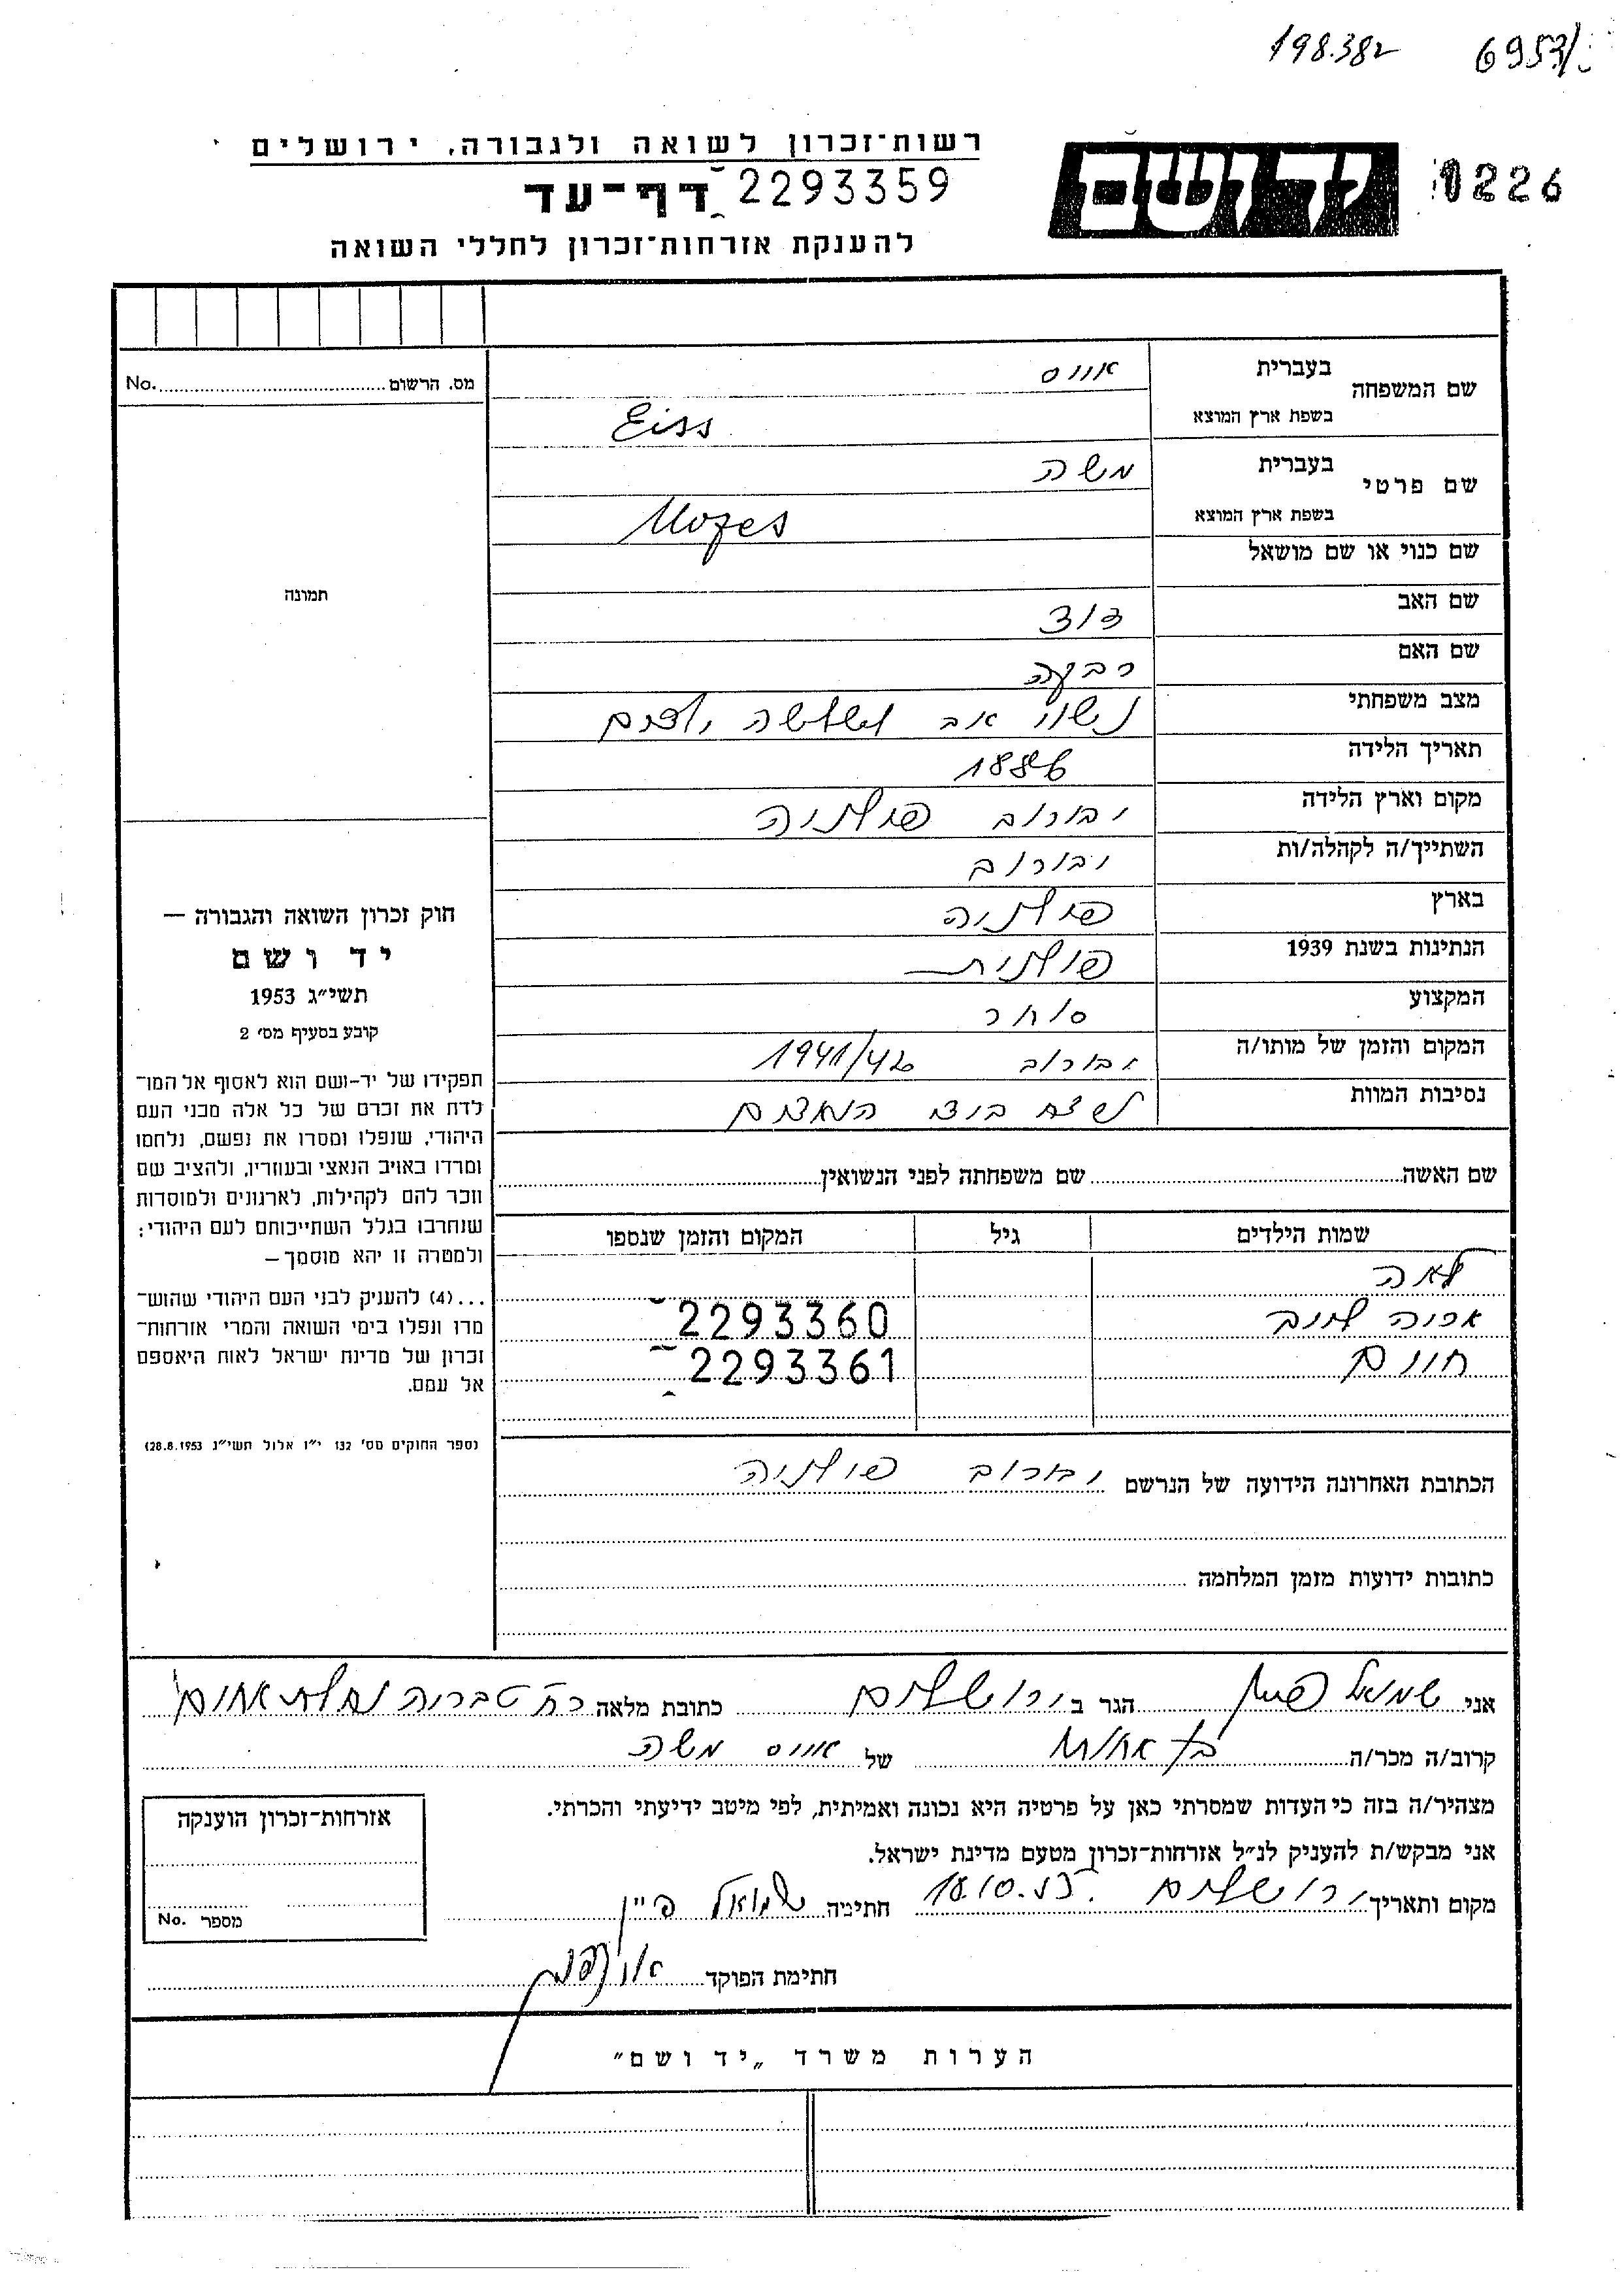 198.382
רשות־זכרון לשואה ולגבורה, ירושלים
יד ושם
1226
דף-עד 2293359
להענקת אזרחות־זכרון לחללי השואה
מס. הרשום No.
שם המשפחה
בעברית אייס
בשפת ארץ המוצא Eiss
שם פרטי
בעברית משה
בשפת ארץ המוצא Mozes
שם כנוי או שם מושאל
תמונה
שם האב דוד
שם האם רבקה
מצב משפחתי נשוי אב לשלשה ילדים
תאריך הלידה 1886
מקום וארץ הלידה יבורוב פולניה
השתייך/ה לקהלה/ות יבורוב
בארץ פולניה
הנתינות בשנת 1939 פולנית
המקצוע סוחר
המקום והזמן של מותו/ה יבורוב 1941/42
נסיבות המוות נרצח בידי הנאצים
חוק זכרון השואה והגבורה —
יד ושם
תשי״ג 1953
קובע בסעיף מס׳ 2
תפקידו של יד-ושם הוא לאסוף אל המו־
לדת את זכרם של כל אלה מבני העם
היהודי, שנפלו ומסרו את נפשם, נלחמו
ומרדו באויב הנאצי ובעוזריו, ולהציב שם
וזכר להם לקהילות, לארגונים ולמוסדות
שנחרבו בגלל השתייכותם לעם היהודי:
ולמטרה זו יהא מוסמך—
...(4) להעניק לבני העם היהודי שהוש־
מדו ונפלו בימי השואה והמרי אזרחות־
זכרון של מדינת ישראל לאות היאספם
אל עמם.
(ספר החוקים מס׳ 132 י״ז אלול תשי״ג 28.8.1953)
שם האשה שם משפחתה לפני הנשואין
שמות הילדים גיל המקום והזמן שנספו
לאה
אריה לייב 2293360
חיים 2293361
הכתובת האחרונה הידועה של הנרשם יבורוב פולניה
כתובות ידועות מזמן המלחמה
אני שמואל פיין הגר ב ירושלים כתובת מלאה רח טבריה נחלת אחים
קרוב/ה מכר/ה בן אחות של אייס משה
מצהיר/ה בזה כי העדות שמסרתי כאן על פרטיה היא נכונה ואמיתית, לפי מיטב ידיעתי והכרתי.
אני מבקש/ת להעניק לנ״ל אזרחות־זכרון מטעם מדינת ישראל.
מקום ותאריך ירושלים חתימה שמואל פיין
אזרחות-זכרון הוענקה
מספר No.
חתימת הפוקד
הערות משרד „יד ושם״